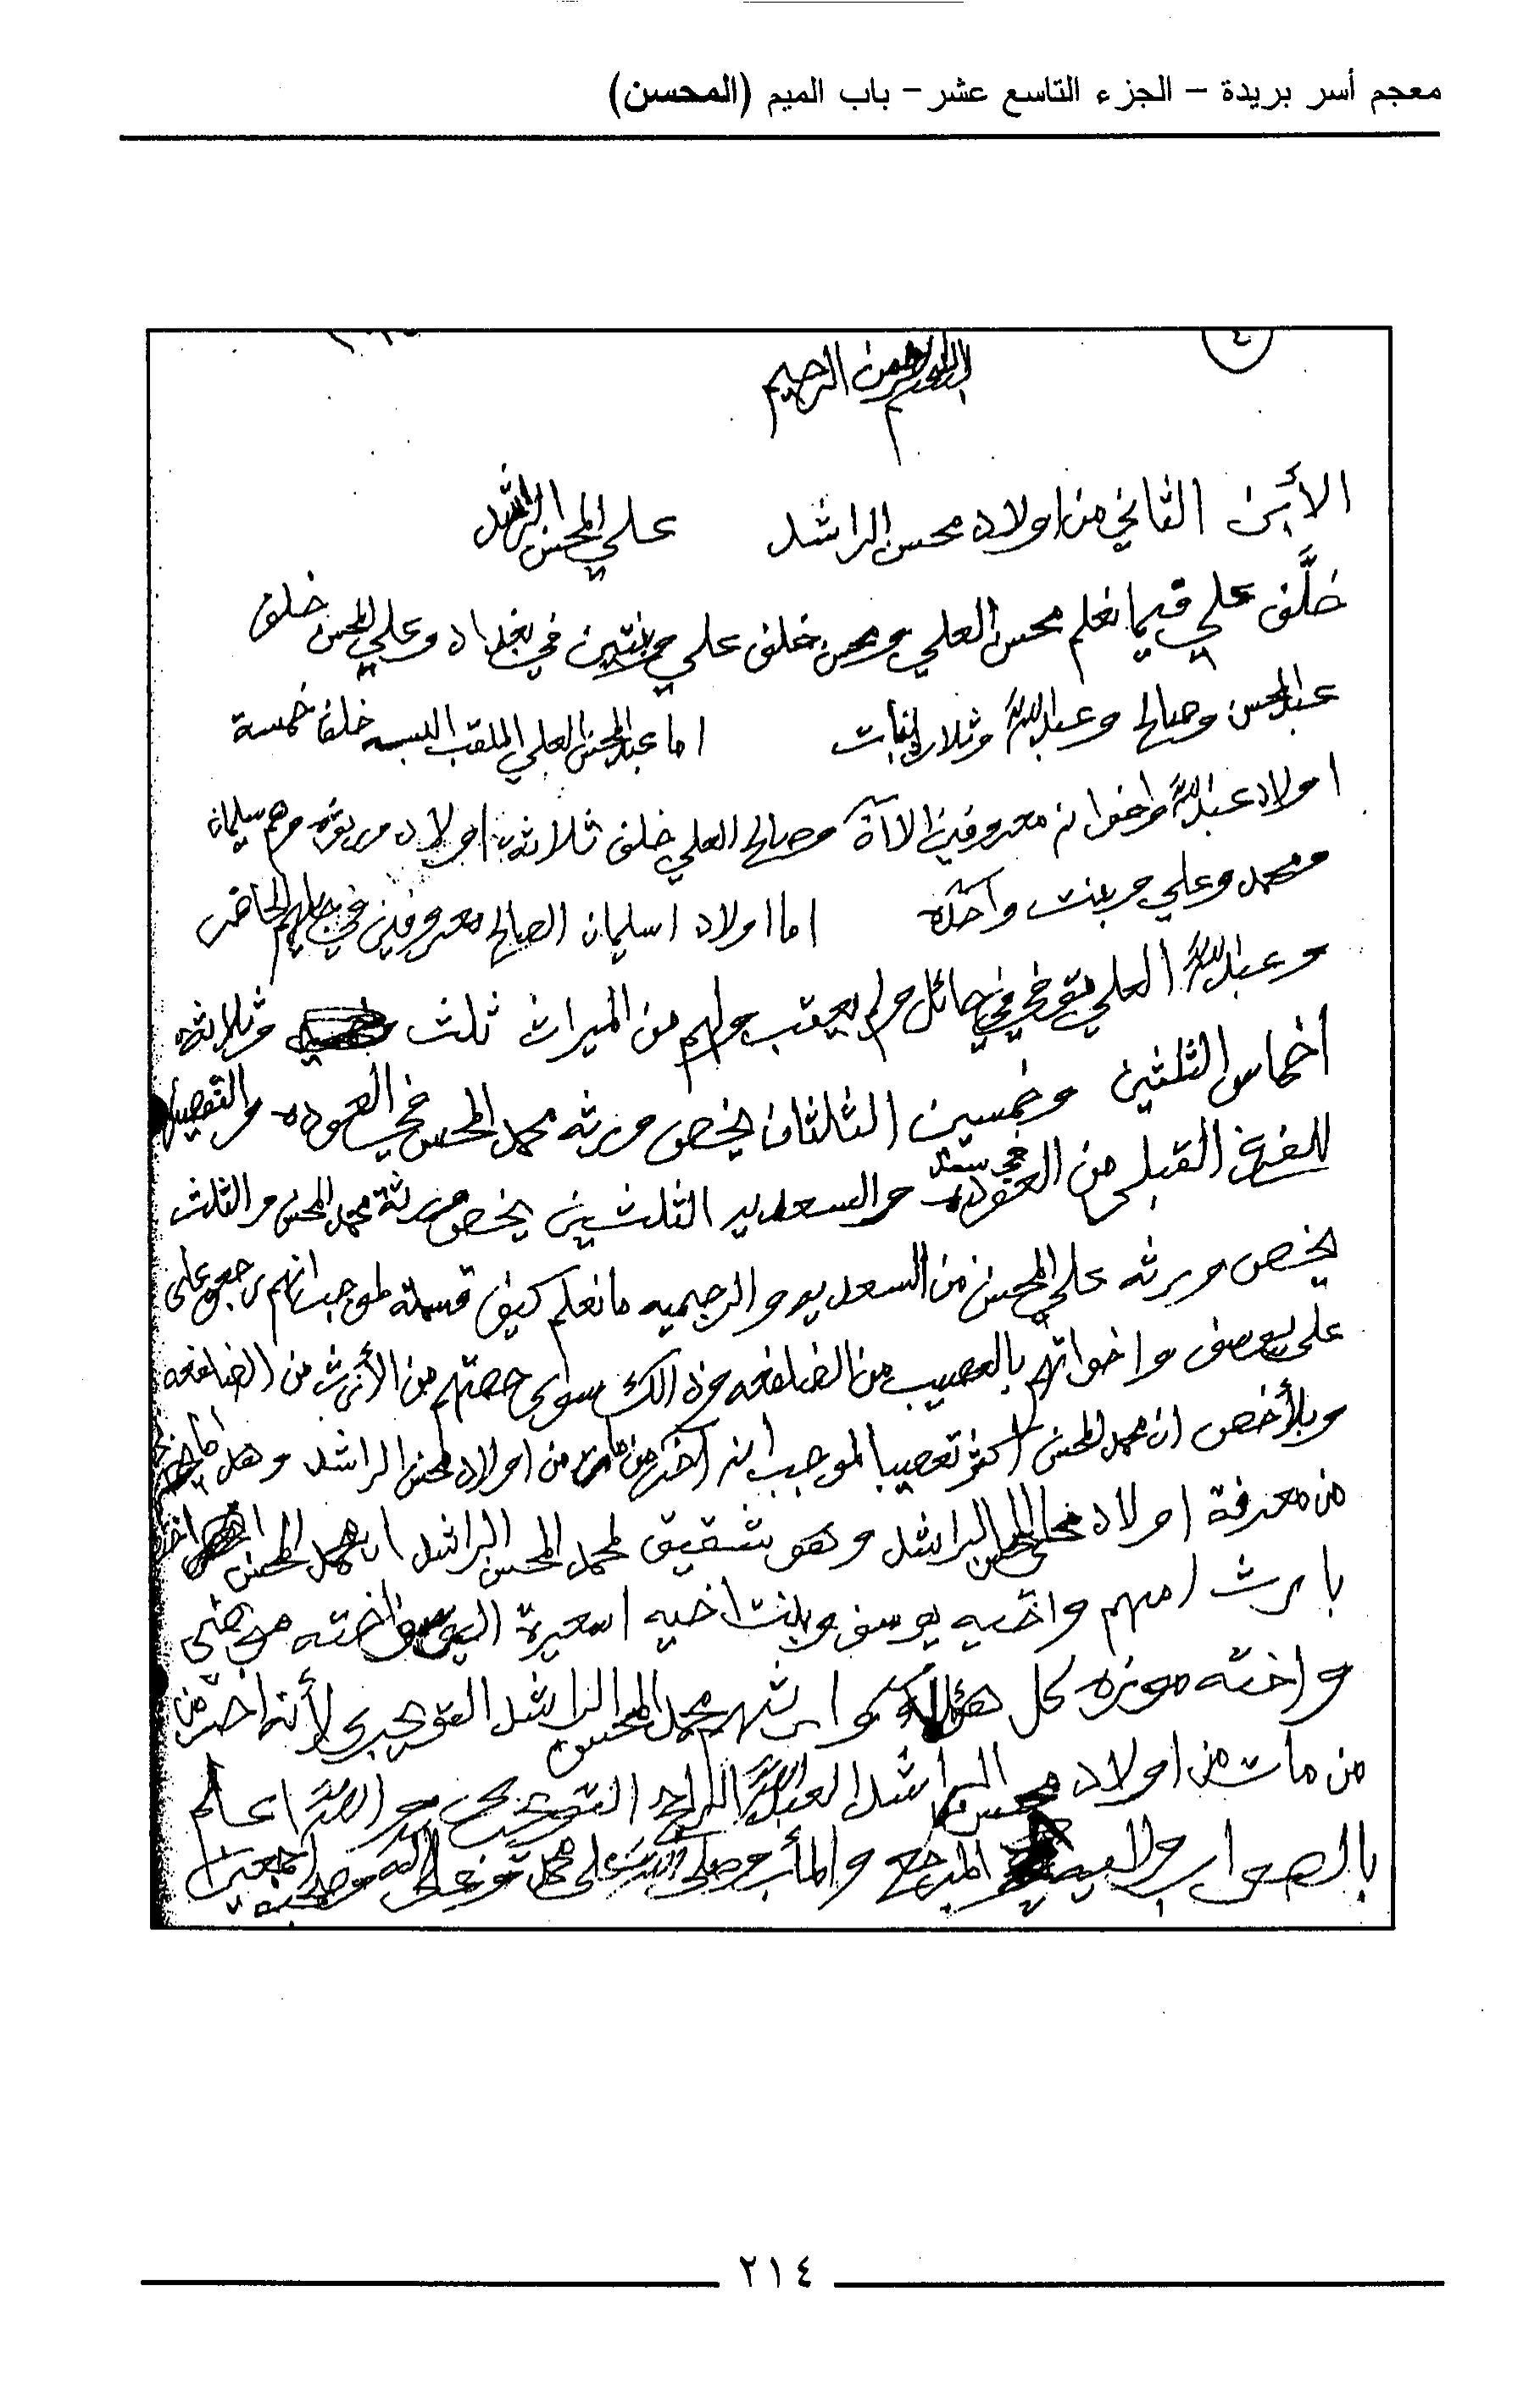 معجم أسر بريدة – الجزء التاسع عشر – باب الميم (المحسن)
٤
بسم الله الرحمن الرحيم
الأبن الثاني من اولاد محسن الراشد علي المحسن الراشد
خلَّف علي فيما نعلم محسن العلي ومحسن خلف علي وبنتين في بغداد وعلي المحسن خلف
عبدالمحسن وصالح وعبدالله وثلاث بنات اما عبدالمحسن العلي الملقب خلف خمسة
اولاد عبدالله واخوانه معروفين الاآن وصالح العلي خلف ثلاثة اولاد وهم سليمان
ومحمد وعلي وبنت واحده اما اولاد اسليمان الصالح معروفين في الحاضر
وعبدالله العلي توفي في حائل ولم يعقب ولهم من الميراث ثلث وثلاثة
أخماس الثلثين وخمسين الثلثان يخص ورثه محمد المحسن في العوده والتفصيل
للفرغ القبلي من العوده والسعديه الثلثين يخص ورثة محمد المحسن والثلث
يخص ورثه علي المحسن من السعديه والرجميه ما نعلم كيف قسمة لموجب انهم رجعو على
على يوسف واخواتهم بالعصيب من الضلفعه وذالك سوى حصتهم من الأرث من الضلفعه
وبلأخص ان محمد المحسن اكثر تعصيبا لموجب انه آخر من مات من اولاد محسن الراشد وهذا ما
من معرفة اولاد الراشد وهو شقيق لمحمد المحسن الراشد ان محمد المحسن
بارث امهم واخيه يوسف وبنت اخيه اسعيرة اليوسف واخته هي
واخته موزه كل هؤلاء محمد المحسن الراشد التويجري لأنه اخر من
من مات من اولاد محسن الراشد العبدالله التويجري والله اعلم
بالصواب واليه المرجع والمأب وصلى الله على محمد وعلى اله وصحبه اجمعين
٢١٤